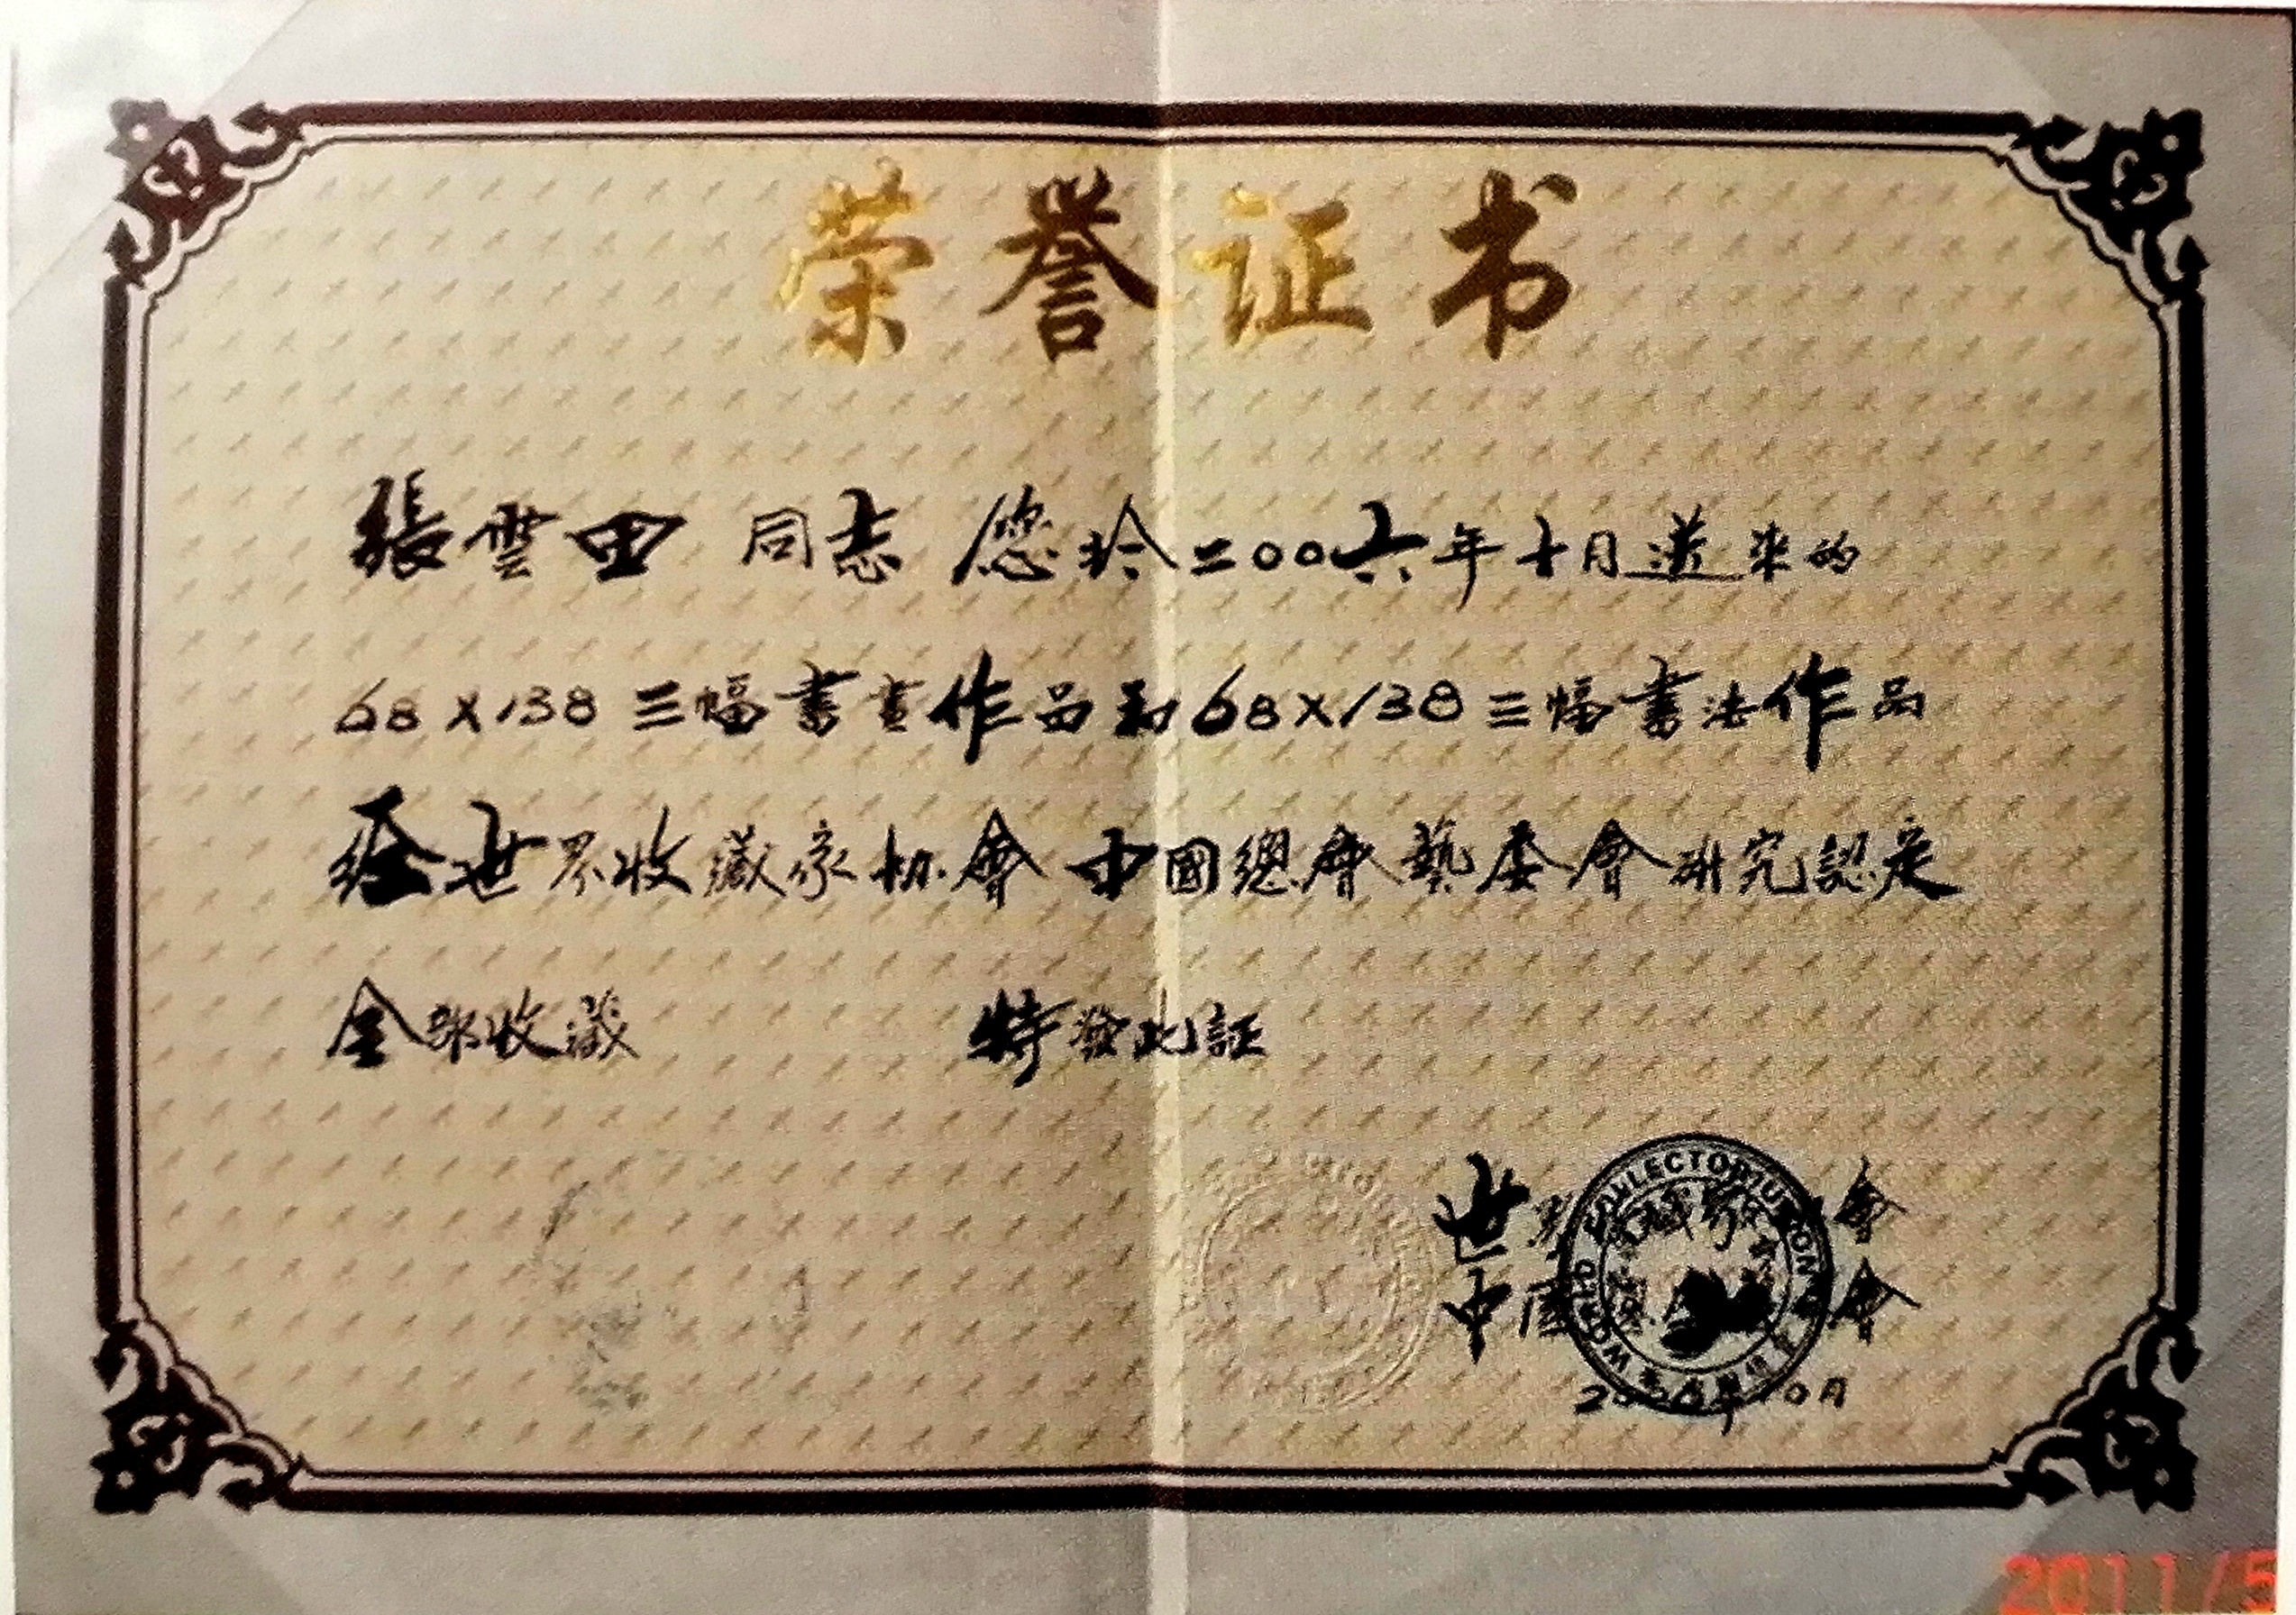 荣誉证书
張雲田 同志 您於二〇〇六年十月送来的
68X138三幅書畫作品和68X138三幅書法作品
经世界收藏家协會中國總會藝委會研究認定
全部收藏 特發此証
世界收藏家 會
中國 會
WORLD COLLECTORI UNION
10月
2011/5